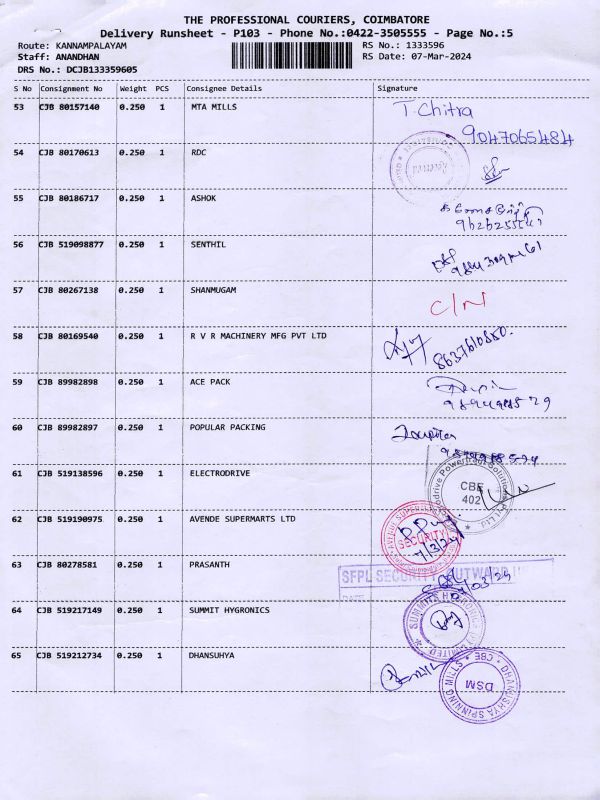 THE PROFESSIONAL COURIERS, COIMBATORE
Delivery Runsheet - P103 - Phone No.:0422-3505555 - Page No.:5
Route: KANNAMPALAYAM RS No.: 1333596
Staff: ANANDHAN RS Date: 07-Mar-2024
DRS No.: DCJB133359605
S No Consignment No Weight PCS Consignee Details Signature
53 CJB 80157140 0.250 1 MTA MILLS T.Chitra
9047065484
54 CJB 80170613 0.250 1 RDC
55 CJB 80186717 0.250 1 ASHOK
56 CJB 519098877 0.250 1 SENTHIL
57 CJB 80267138 0.250 1 SHANMUGAM C/N
58 CJB 80169540 0.250 1 R V R MACHINERY MFG PVT LTD
8637610880.
59 CJB 89982898 0.250 1 ACE PACK
60 CJB 89982897 0.250 1 POPULAR PACKING
61 CJB 519138596 0.250 1 ELECTRODRIVE
CBE
402
62 CJB 519190975 0.250 1 AVENDE SUPERMARTS LTD
SECURITY
7/3/24
63 CJB 80278581 0.250 1 PRASANTH
SFPL SECURITY OUTWARD
DATE
64 CJB 519217149 0.250 1 SUMMIT HYGRONICS
65 CJB 519212734 0.250 1 DHANSUHYA
DHANUSHYA SPINNING MILLS * CBE *
DSM